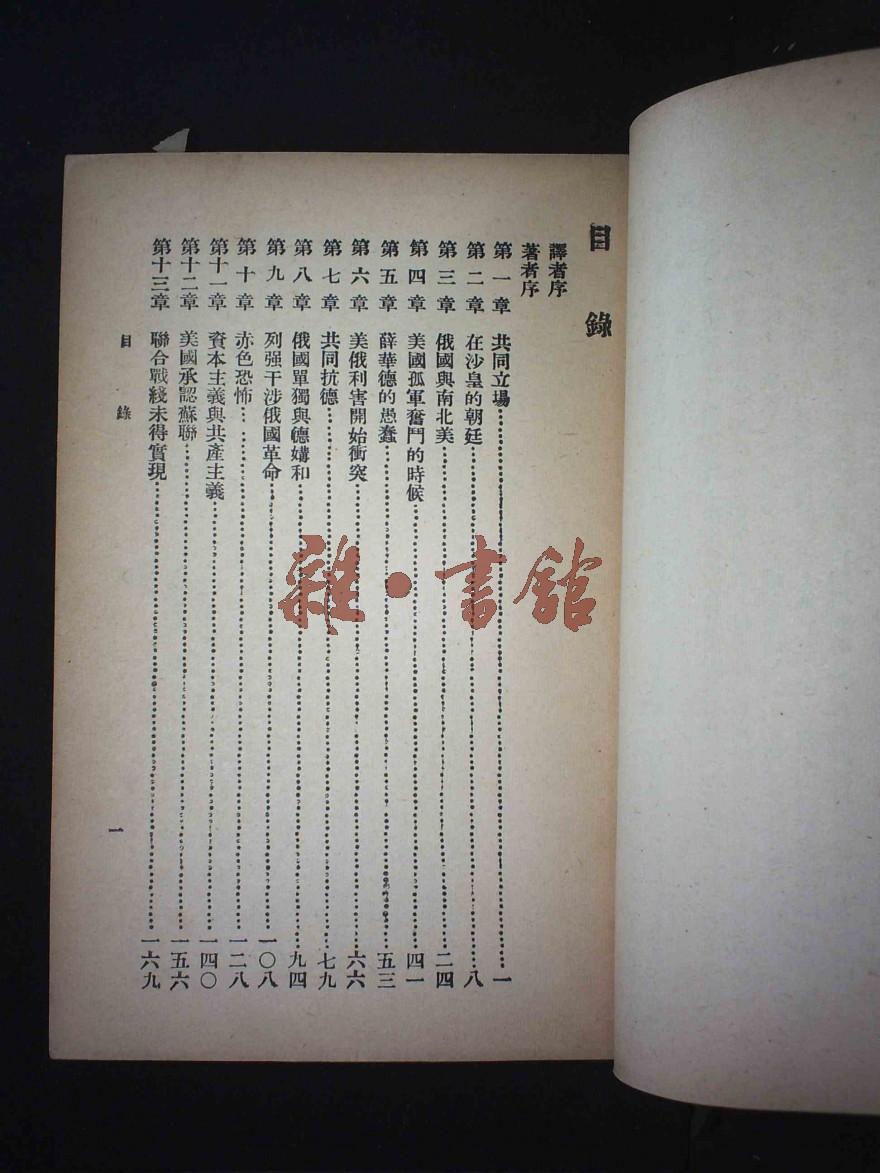 目錄
譯者序
著者序
第一章 共同立場……一
第二章 在沙皇的朝廷……八
第三章 俄國與南北美……二四
第四章 美國孤軍奮鬥的時候……四一
第五章 薛華德的愚蠢……五三
第六章 美俄利害開始衝突……六六
第七章 共同抗德……七九
第八章 俄國單獨與德媾和……九四
第九章 列强干涉俄國革命……一〇八
第十章 赤色恐怖……一二八
第十一章 資本主義與共產主義……一四〇
第十二章 美國承認蘇聯……一五六
第十三章 聯合戰綫未得實現……一六九
目錄
一
雜·書館